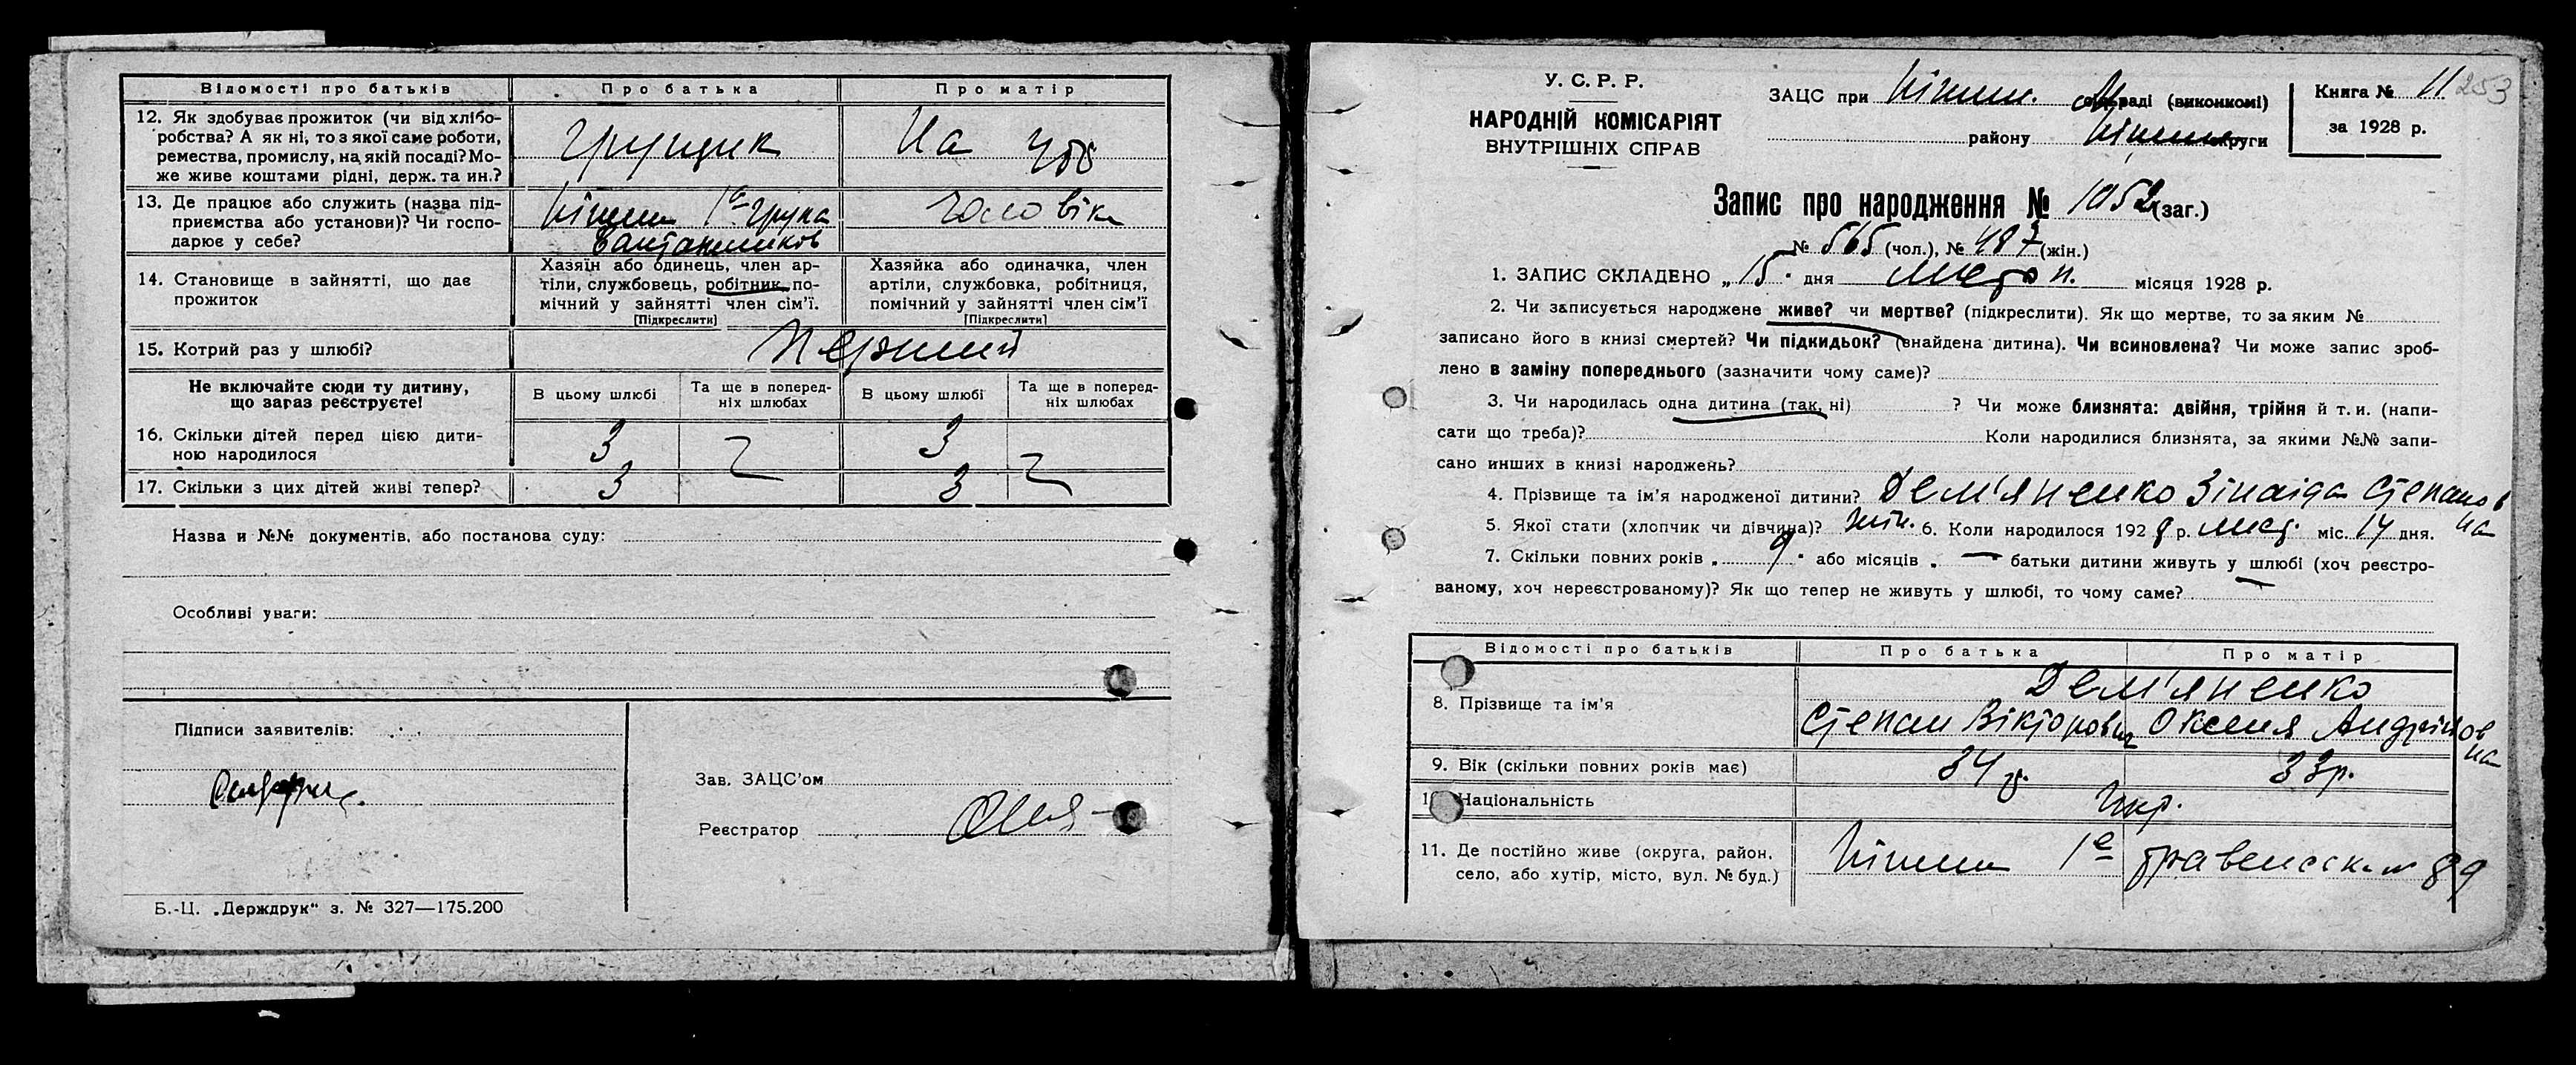 Відомості про батьків Про батька Про матір
12. Як здобуває прожиток (чи від хлібо-
робства? А як ні, то з якої саме роботи,
ремества, промислу, на якій посаді? Мо-
же живе коштами рідні, держ. та ин.?
Грущик На
13. Де працює або служить (назва під-
приємства або установи)? Чи госпо-
дарює у себе?
Ніжин 1а група чоловіка
14. Становище в зайнятті, що дає
прожиток
Хазяїн або одинець, член ар-
тіли, службовець, робітник, по-
мічний у зайнятті член сім'ї.
[Підкреслити]
Хазяйка або одиначка, член
артіли, службовка, робітниця,
помічний у зайнятті член сім'ї
[Підкреслити]
15. Котрий раз у шлюбі? Перший
Не включайте сюди ту дитину,
що зараз реєструєте!
В цьому шлюбі Та ще в поперед-
ніх шлюбах В цьому шлюбі Та ще в поперед-
ніх шлюбах
16. Скільки дітей перед цією дити-
ною народилося 3 3
17. Скільки з цих дітей живі тепер? 3 3
Назва и №№ документів, або постанова суду:
Особливі уваги:
Підписи заявителів:
Зав. ЗАЦС'ом
Реєстратор
Б.-Ц. „Держдрук" з. № 327—175.200
У. С. Р. Р.
НАРОДНІЙ КОМІСАРІЯТ
ВНУТРІШНІХ СПРАВ
ЗАЦС при Ніжин. раді (виконкомі)
району Ніжин округи
Книга № 11 253
за 1928 р.
Запис про народження № 1052 (заг.)
№ 565 (чол.), № 487 (жін.)
1. ЗАПИС СКЛАДЕНО „15" дня листоп. місяця 1928 р.
2. Чи записується народжене живе? чи мертве? (підкреслити). Як що мертве, то за яким №
записано його в книзі смертей? Чи підкидьок? (знайдена дитина). Чи всиновлена? Чи може запис зроб-
лено в заміну попереднього (зазначити чому саме)?
3. Чи народилась одна дитина (так, ні) ? Чи може близнята: двійня, трійня й т. и. (напи-
сати що треба)? Коли народилися близнята, за якими №№ запи-
сано инших в книзі народжень?
4. Прізвище та ім'я народженої дитини? Дем'яненко Зінаіда Степанов
на
5. Якої статі (хлопчик чи дівчина)? жін. 6. Коли народилося 1928 р. лист. міс. 14 дня.
7. Скільки повних років „ 9 " або місяців „ — " батьки дитини живуть у шлюбі (хоч реєстро-
ваному, хоч нереєстрованому)? Як що тепер не живуть у шлюбі, то чому саме?
Відомості про батьків Про батька Про матір
8. Прізвище та ім'я Дем'яненко
Степан Вікторович Оксеня Андріїов
на
9. Вік (скільки повних років має) 34 р. 33 р.
10. Національність Укр.
11. Де постійно живе (округа, район,
село, або хутір, місто, вул. № буд.)
Ніжин 1е 89